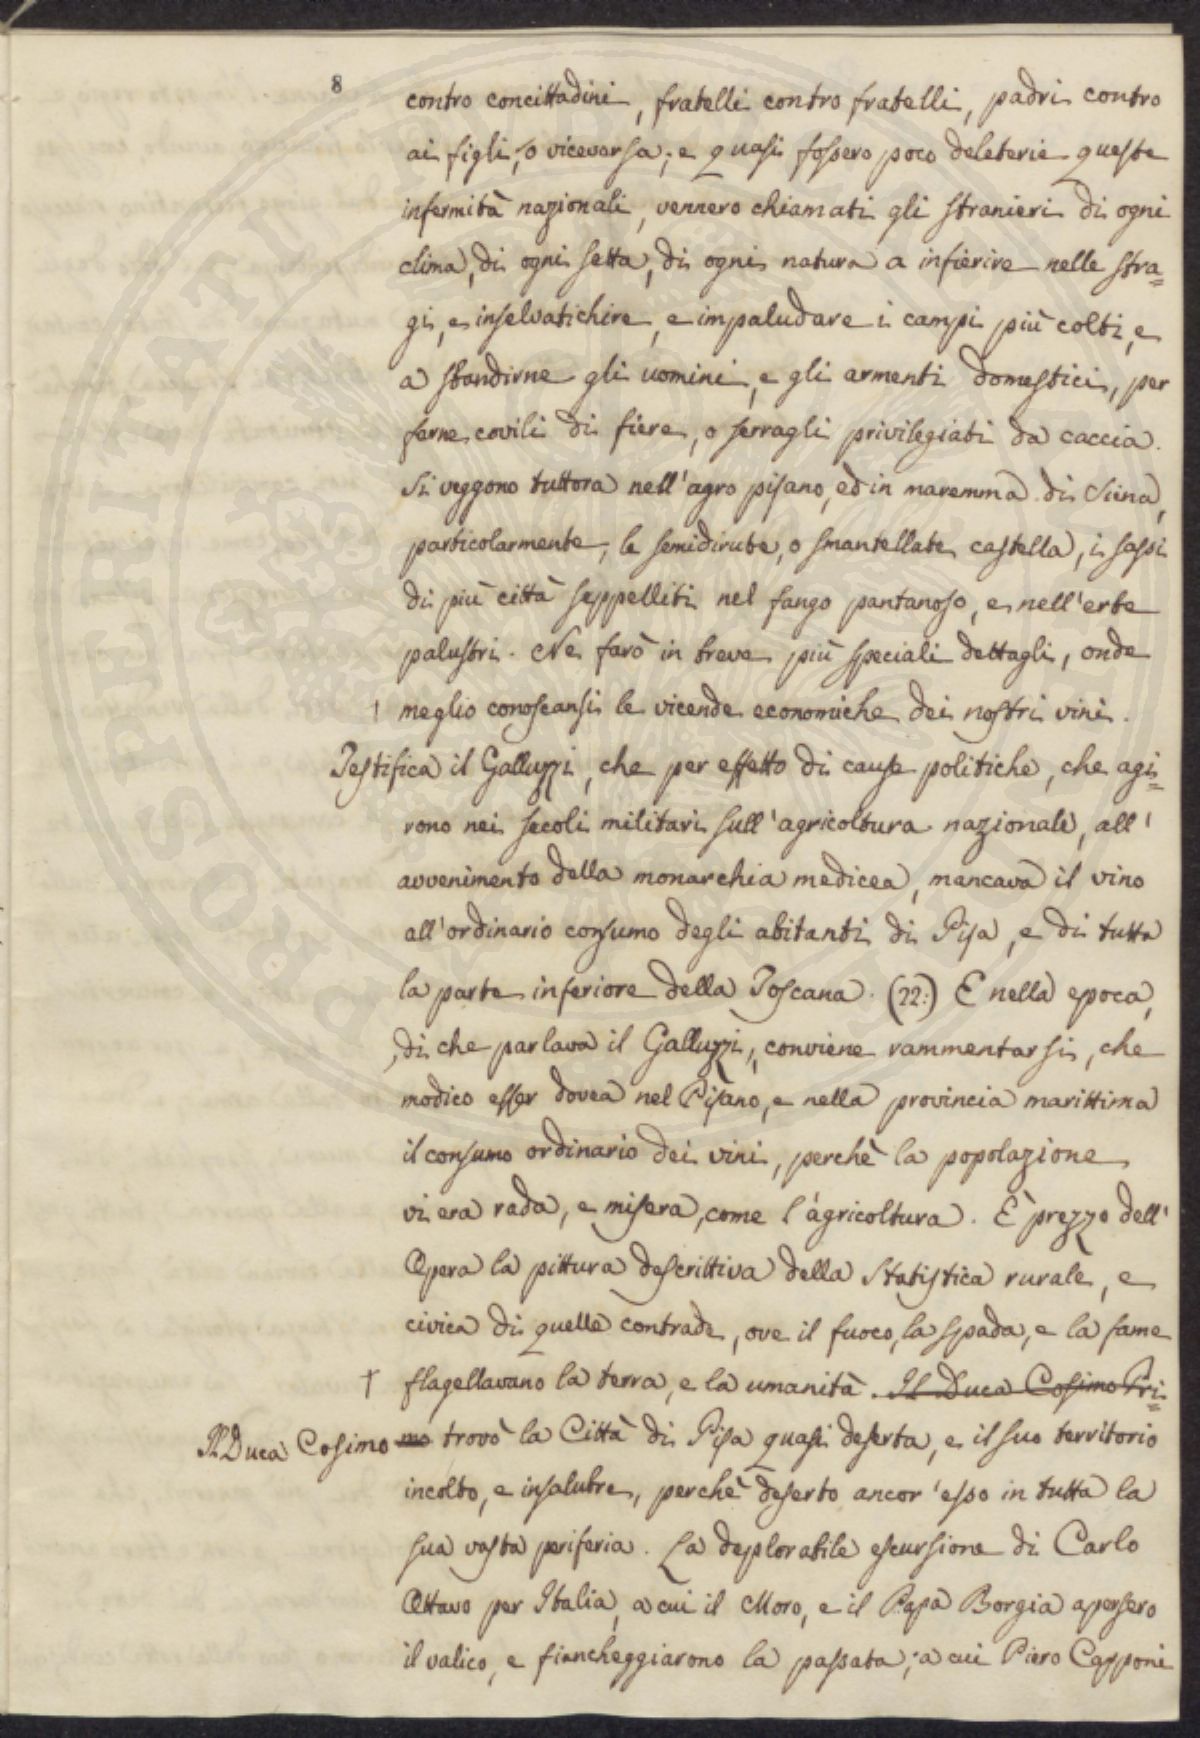 8
contro concittadini, fratelli contro fratelli, padri contro
ai figli, o viceversa; e quasi fossero poco deleterie queste
infermità nazionali, vennero chiamati gli stranieri di ogni
clima, di ogni setta, di ogni natura a infierire nelle stra=
gi, e inselvatichire, e impaludare i campi più colti, e
a sbandirne gli uomini, e gli armenti domestici, per
farne covili di fiere, o serragli privilegiati da caccia.
Si veggono tuttora nell'agro pisano, ed in maremma di Siena,
particolarmente, le semidirute, o smantellate castella, i sassi
di più città seppelliti nel fango pantanoso, e nell'erbe
palustri. Ne farò in breve più speciali dettagli, onde
† meglio conoscansi le vicende economiche dei nostri vini.
Testifica il Galluzzi, che per effetto di cause politiche, che agi=
rono nei secoli militari sull'agricoltura nazionale, all'
avvenimento della monarchia medicea, mancava il vino
all'ordinario consumo degli abitanti di Pisa, e di tutta
la parte inferiore della Toscana. (22:) E nella epoca,
di che parlava il Galluzzi, conviene rammentarsi, che
modico esser dovea nel Pisano, e nella provincia marittima
il consumo ordinario dei vini, perchè la popolazione
vi era rada, e misera, come l'agricoltura. È prezzo dell'
Opera la pittura descrittiva della Statistica rurale, e
civica di quelle contrade, ove il fuoco, la spada, e la fame
† flagellavano la terra, e la umanità. Il Duca Cosimo Pri=
Il Duca Cosimo mo trovò la Città di Pisa quasi deserta, e il suo territorio
incolto, e insalubre, perchè deserto ancor'esso in tutta la
sua vasta periferia. La deplorabile escursione di Carlo
Ottavo per Italia, a cui il Moro, e il Papa Borgia apersero
il valico, e fiancheggiarono la passata; a cui Piero Capponi
PROSPERITATI PVBLICAE